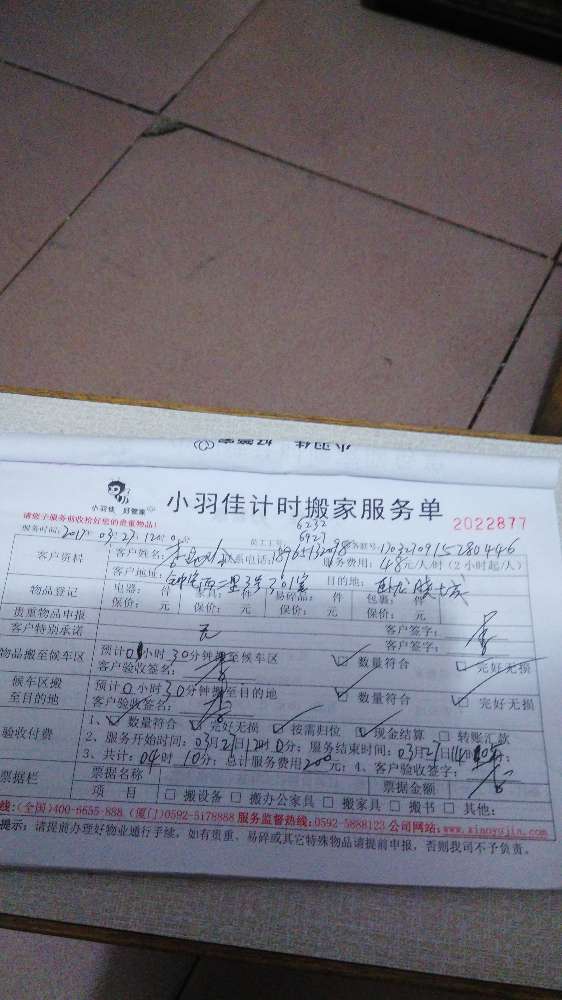 小羽佳 好管家
小羽佳计时搬家服务单
2022877
请您于服务前收拾好您的贵重物品!
服务时间: 2017. 03. 27. 12:
员工工号: 6232 6927
客户资料 客户姓名: 联系电话: 服务费用: 48元/人/时 (2小时起/人)
客户地址: 目的地:
物品登记 电器: 件 家具: 件 易碎品: 件 包裹: 件
保价: 元 保价: 元 保价: 元 保价: 元
贵重物品申报 客户签字:
客户特别承诺 无 客户签字:
物品搬至候车区 预计0小时30分钟搬至候车区 数量符合 完好无损
客户验收签名:
候车区搬至目的地 预计0小时30分钟搬至目的地 数量符合 完好无损
客户验收签名:
验收付费 1、 数量符合 完好无损 按需归位 现金结算 转账汇款
2、服务开始时间: 03月27日12时10分; 服务结束时间: 03月27日14时10分;
3、共计: 04时10分; 总计服务费用200元; 4、客户验收签字:
票据栏 票据名称 票据金额
项 目 搬设备 搬办公家具 搬家具 搬书 其他:
线: (全国)400-6655-888 (厦门)0592-5178888 服务监督热线: 0592-5888123 公司网站: www.xiaoyujia.com
提示: 请提前办理好物业通行手续, 如有贵重、易碎或其它特殊物品请提前申报, 否则我司不予负责。